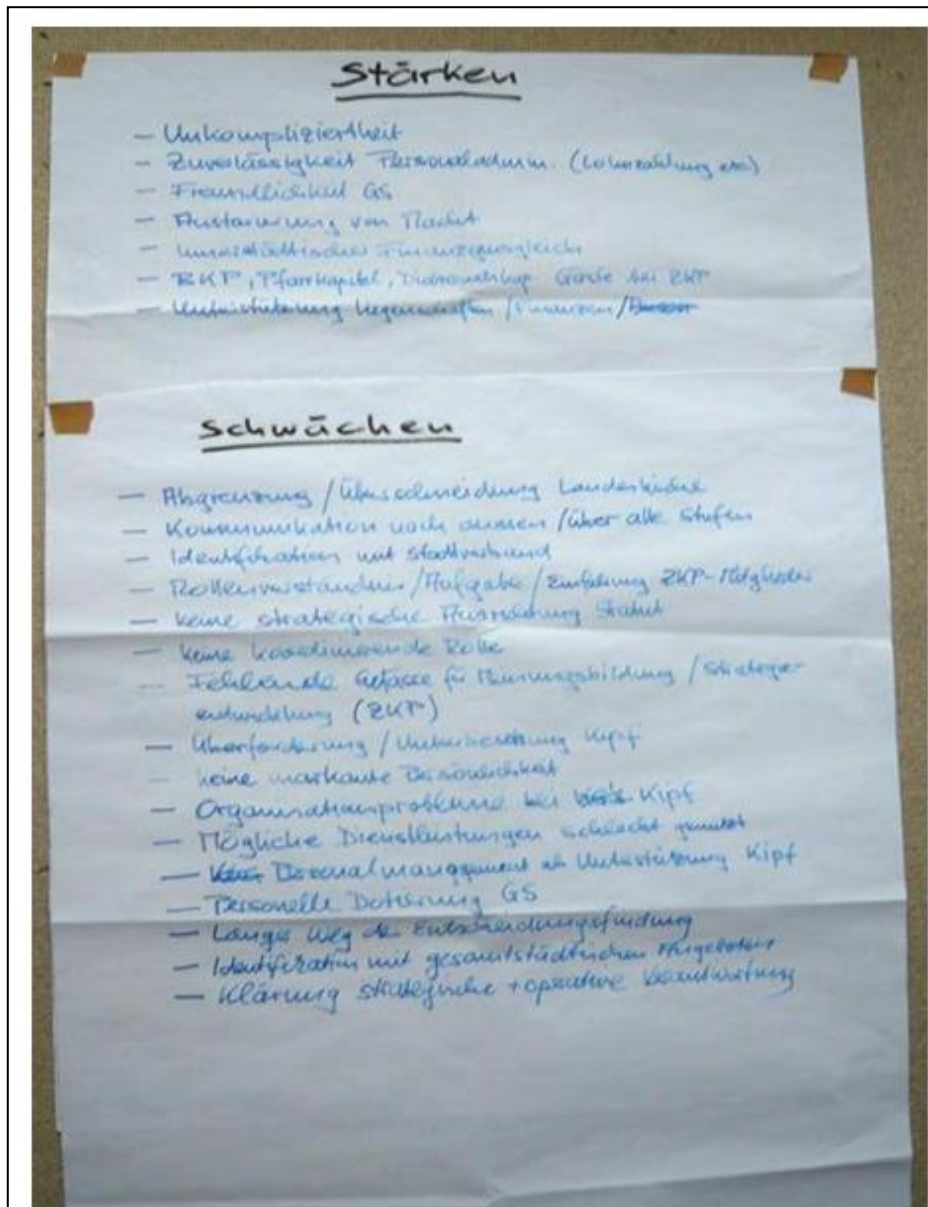 Stärken
— Unkompliziertheit
— Zuverlässigkeit Personaladmin. (Lohnzahlung etc)
— Freundlichkeit GS
— Austarierung von Macht
— Innerstädtischer Finanzausgleich
— BKP, Pfarrkapitel, Gäste bei ZKP
— Unterstützung Liegenschaften / Finanzen /
Schwächen
— Abgrenzung / Überschneidung Landeskirche
— Kommunikation nach aussen / über alle Stufen
— Identifikation mit Stadtverband
— Rollenverständnis / Aufgabe / Einführung ZKP-Mitglieder
— keine strategische Ausrichtung Statut
— keine koordinierende Rolle
— Fehlende Gefässe für Meinungsbildung / Strategie-
entwicklung (ZKP)
— Überforderung / Unterbesetzung Kipf
— keine markante Persönlichkeit
— Organisationsprobleme bei Kipf
— Mögliche Dienstleistungen schlecht genutzt
— Personalmanagement als Unterstützung Kipf
— Personelle Dotierung GS
— Langer Weg der Entscheidungsfindung
— Identifikation mit gesamtstädtischen Angeboten
— Klärung strategische + operative Verantwortung